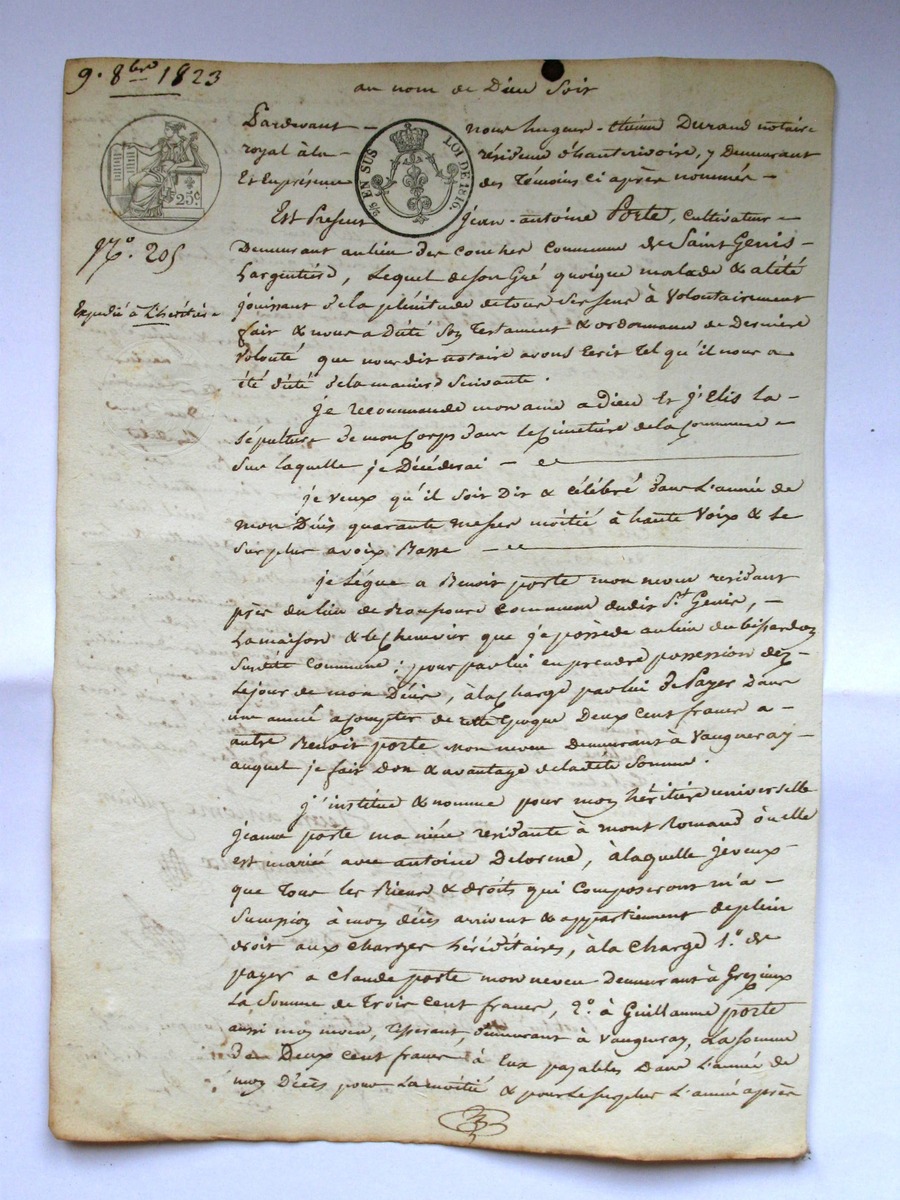 9. 8bre 1823
au nom de Dieu soit
Pardevant nous hugues-étienne Durand notaire
royal à la résidence d'hauterivoire, y Demeurant
Et En présence des Témoins ci après nommés
25c
9/6 EN SUS LOI DE 1816.
N.° 205
Expedié à L'héritière
Est Présent Jean-antoine Porte, cultivateur
Demeurant au lieu des conches Commune de Saint Genis-
Largentière, Lequel de son Gré quoique malade & alité
jouissant de la plénitude de tous ses sens à Volontairement
fait & nous a dicté son Testament & ordonnance de Dernière
Volonté que nous dit notaire avons Ecrit Tel qu'il nous a
été dicté de la manière Suivante.
je recommande mon ame a Dieu Et j'Elis la
sépulture de mon Corps dans le Cimetière de la Commune
Sur laquelle je Décéderai
je veux qu'il soit Dit & célébré dans L'année de
mon Décès quarante messes moitié à haute Voix & le
surplus a voix Basse
je Lègue a Benoit porte mon neveu residant
près du lieu de Commune dudit St. Genis,
La maison & le que je possède au lieu du
Susdite Commune; pour par lui en prendre possession dès
Le jour de mon Décès, à la Charge par lui de Payer Dans
une année a Compter de cette Epoque Deux cent francs a
autre Benoit porte mon neveu Demeurant à Vaugneray
auquel je fais Don & avantage de ladite Somme.
j'institue & nomme pour mon héritière universelle
jeanne porte ma nièce residante à mont Romand où elle
est mariée avec antoine Delorme, à laquelle je veux
que Tous les Biens & droits qui Composeront ma
Sucession à mon décès arrivent & appartiennent de plein
droit aux Charges héréditaires, à la Charge 1.° de
payer a claude porte mon neveu Demeurant à Grezieux
La Somme de Trois Cent francs, 2.° à Guillaume porte
aussi mon neveu, Tisserant, demeurant à Vaugneray, La somme
de Deux cent francs à Eux payables Dans L'année de
mon Décès pour La moitié & pour le surplus L'année après